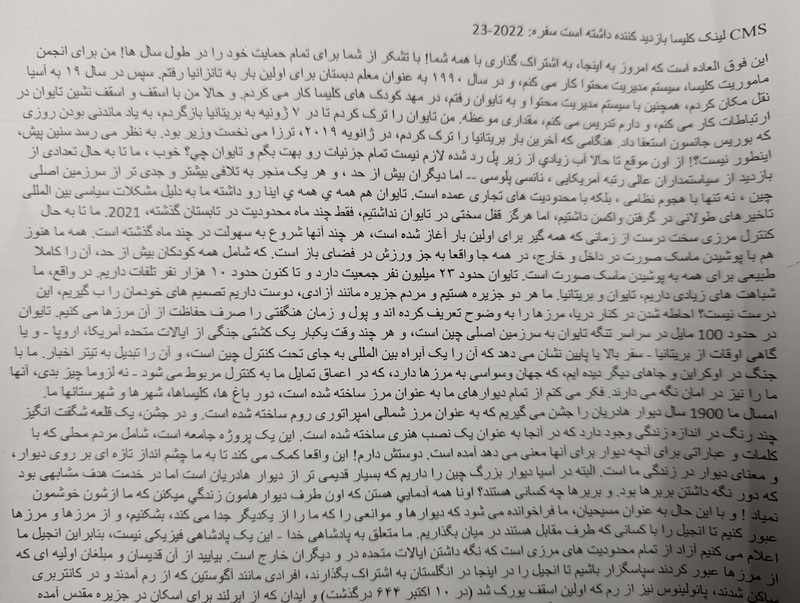 CMS لینک کلیسا بازدید کننده داشته است سفره: 2022-23
این فوق العاده است که امروز به اینجا، به اشتراک گذاری با همه شما! با تشکر از شما برای تمام حمایت خود را در طول سال ها! من برای انجمن
ماموریت کلیسا، سیستم مدیریت محتوا کار می کنم، و در سال ۱۹۹۰ به عنوان معلم دبستان برای اولین بار به تانزانیا رفتم. سپس در سال ۱۹ به آسیا
نقل مکان کردم، همچنین با سیستم مدیریت محتوا و به تایوان رفتم، در مهد کودک های کلیسا کار می کردم. و حالا من با اسقف و اسقف نشین تایوان در
ارتباطات کار می کنم، و دارم تدریس می کنم، مقداری موعظه. من تایوان را ترک کردم تا در ۷ ژونیه به بریتانیا بازگردم، به یاد ماندنی بودن روزی
که بوریس جانسون استعفا داد. هنگامی که آخرین بار بریتانیا را ترک کردم، در ژانویه ۲۰۱۹، ترزا می نخست وزیر بود. به نظر می رسد سنین پیش،
اینطور نیست؟! از اون موقع تا حالا آب زیادي از زیر پل رد شده لازم نیست تمام جزئیات رو بهت بگم و تایوان چي؟ خوب ، ما تا به حال تعدادی از
بازدید از سیاستمداران عالی رتبه آمریکایی ، نانسی پلوسی -- اما دیگران بیش از حد ، و هر یک منجر به تلافی بیشتر و جدی تر از سرزمین اصلی
چین ، نه تنها با هجوم نظامی ، بلکه با محدودیت های تجاری عمده است. تایوان هم همه ي همه ي اینا رو داشته ما به دلیل مشکلات سیاسی بین المللی
تاخیرهای طولانی در گرفتن واکسن داشتیم، اما هرگز قفل سختی در تایوان نداشتیم، فقط چند ماه محدودیت در تابستان گذشته، 2021. ما تا به حال
کنترل مرزی سخت درست از زمانی که همه گیر برای اولین بار آغاز شده است، هر چند آنها شروع به سهولت در چند ماه گذشته است. همه ما هنوز
هم با پوشیدن ماسک صورت در داخل و خارج، در همه جا واقعا به جز ورزش در فضای باز است. که شامل همه کودکان بیش از حد، آن را کاملا
طبیعی برای همه به پوشیدن ماسک صورت است. تایوان حدود ۲۳ میلیون نفر جمعیت دارد و تا کنون حدود ۱۰ هزار نفر تلفات داریم. در واقع، ما
شباهت های زیادی داریم، تایوان و بریتانیا. ما هر دو جزیره هستیم و مردم جزیره مانند آزادی، دوست داریم تصمیم های خودمان را ب گیریم، این
درست نیست؟ احاطه شدن در کنار دریا، مرزها را به وضوح تعریف کرده اند و پول و زمان هنگفتی را صرف حفاظت از آن مرزها می کنیم. تایوان
در حدود 100 مایل در سراسر تنگه تایوان به سرزمین اصلی چین است، و هر چند وقت یکبار یک کشتی جنگی از ایالات متحده آمریکا، اروپا - و یا
گاهی اوقات از بریتانیا - سفر بالا یا پایین نشان می دهد که آن را یک آبراه بین المللی به جای تحت کنترل چین است، و آن را تبدیل به تیتر اخبار. ما با
جنگ در اوکراین و جاهای دیگر دیده ایم، که جهان وسواسی به مرزها دارد، که در اعماق تمایل ما به کنترل مربوط می شود - نه لزوما چیز بدی، آنها
ما را نیز در امان نگه می دارند. فکر می کنم از تمام دیوارهای ما به عنوان مرز ساخته شده است، دور باغ ها، کلیساها، شهرها و شهرستانها ما.
امسال ما 1900 سال دیوار هادریان را جشن می گیریم که به عنوان مرز شمالی امپراتوری روم ساخته شده است. و در جشن، یک قلعه شگفت انگیز
چند رنگ در اندازه زندگی وجود دارد که در آنجا به عنوان یک نصب هنری ساخته شده است. این یک پروژه جامعه است، شامل مردم محلی که با
کلمات و عباراتی برای آنچه دیوار برای آنها معنی می دهد آمده است. دوستش دارم! این واقعا کمک می کند تا به ما چشم انداز تازه ای بر روی دیوار،
و معنای دیوار در زندگی ما است. البته در آسیا دیوار بزرگ چین را داریم که بسیار قدیمی تر از دیوار هادریان است اما در خدمت هدف مشابهی بود
که دور نگه داشتن بربرها بود. و بربرها چه کسانی هستند؟ اونا همه آدمایي هستن که اون طرف دیوارهامون زندگي میکنن که ما ازشون خوشمون
نمیاد ! و با این حال به عنوان مسیحیان، ما فراخوانده می شود که دیوارها و موانعی را که ما را از یکدیگر جدا می کند، بشکنیم، و از مرزها و مرزها
عبور کنیم تا انجیل را با کسانی که طرف مقابل هستند در میان بگذاریم. ما متعلق به پادشاهی خدا - این یک پادشاهی فیزیکی نیست، بنابراین انجیل ما
اعلام می کنیم آزاد از تمام محدودیت های مرزی است که نگه داشتن ایالات متحده در و دیگران خارج است. بیایید از آن قدیسان و مبلغان اولیه ای که
از مرزها عبور کردند سپاسگزار باشیم تا انجیل را در اینجا در انگلستان به اشتراک بگذارند، افرادی مانند آگوستین که از رم آمدند و در کانتربری
ساکن شدند، پائولینوس نیز از رم که اولین اسقف یورک شد (در ۱۰ اکتبر ۶۴۴ درگذشت) و آیدان که از ایرلند برای اسکان در جزیره مقدس آمده